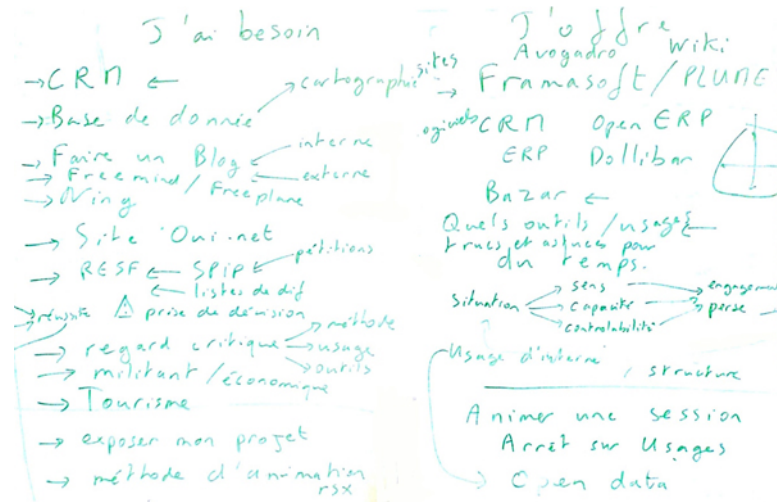 J'ai besoin
→ CRM ←
→ Base de donnée → cartographie
→ Faire un Blog ← interne
→ Freemind / Freeplane ← externe
→ Ning
→ Site Oui.net
→ RESF ← SPIP ← pétitions
← listes de dif
→ réussite ⚠ prise de décision
→ regard critique → méthode
→ usage
→ outils
→ militant / économique
→ Tourisme
→ exposer mon projet
→ méthode d'animation
rsx
J'offre
Avogadro Wiki
sites
→ Framasoft / PLUME
ogiciels CRM Open ERP
ERP Dollibar
Bazar ←
Quels outils / usages ←
trucs et astuces pour
du temps.
situation → sens → engagement
→ capacité → perse
→ controlabilité
Usage d'interne
/ structure
Animer une session
Arrêt sur Usages
→ Open data